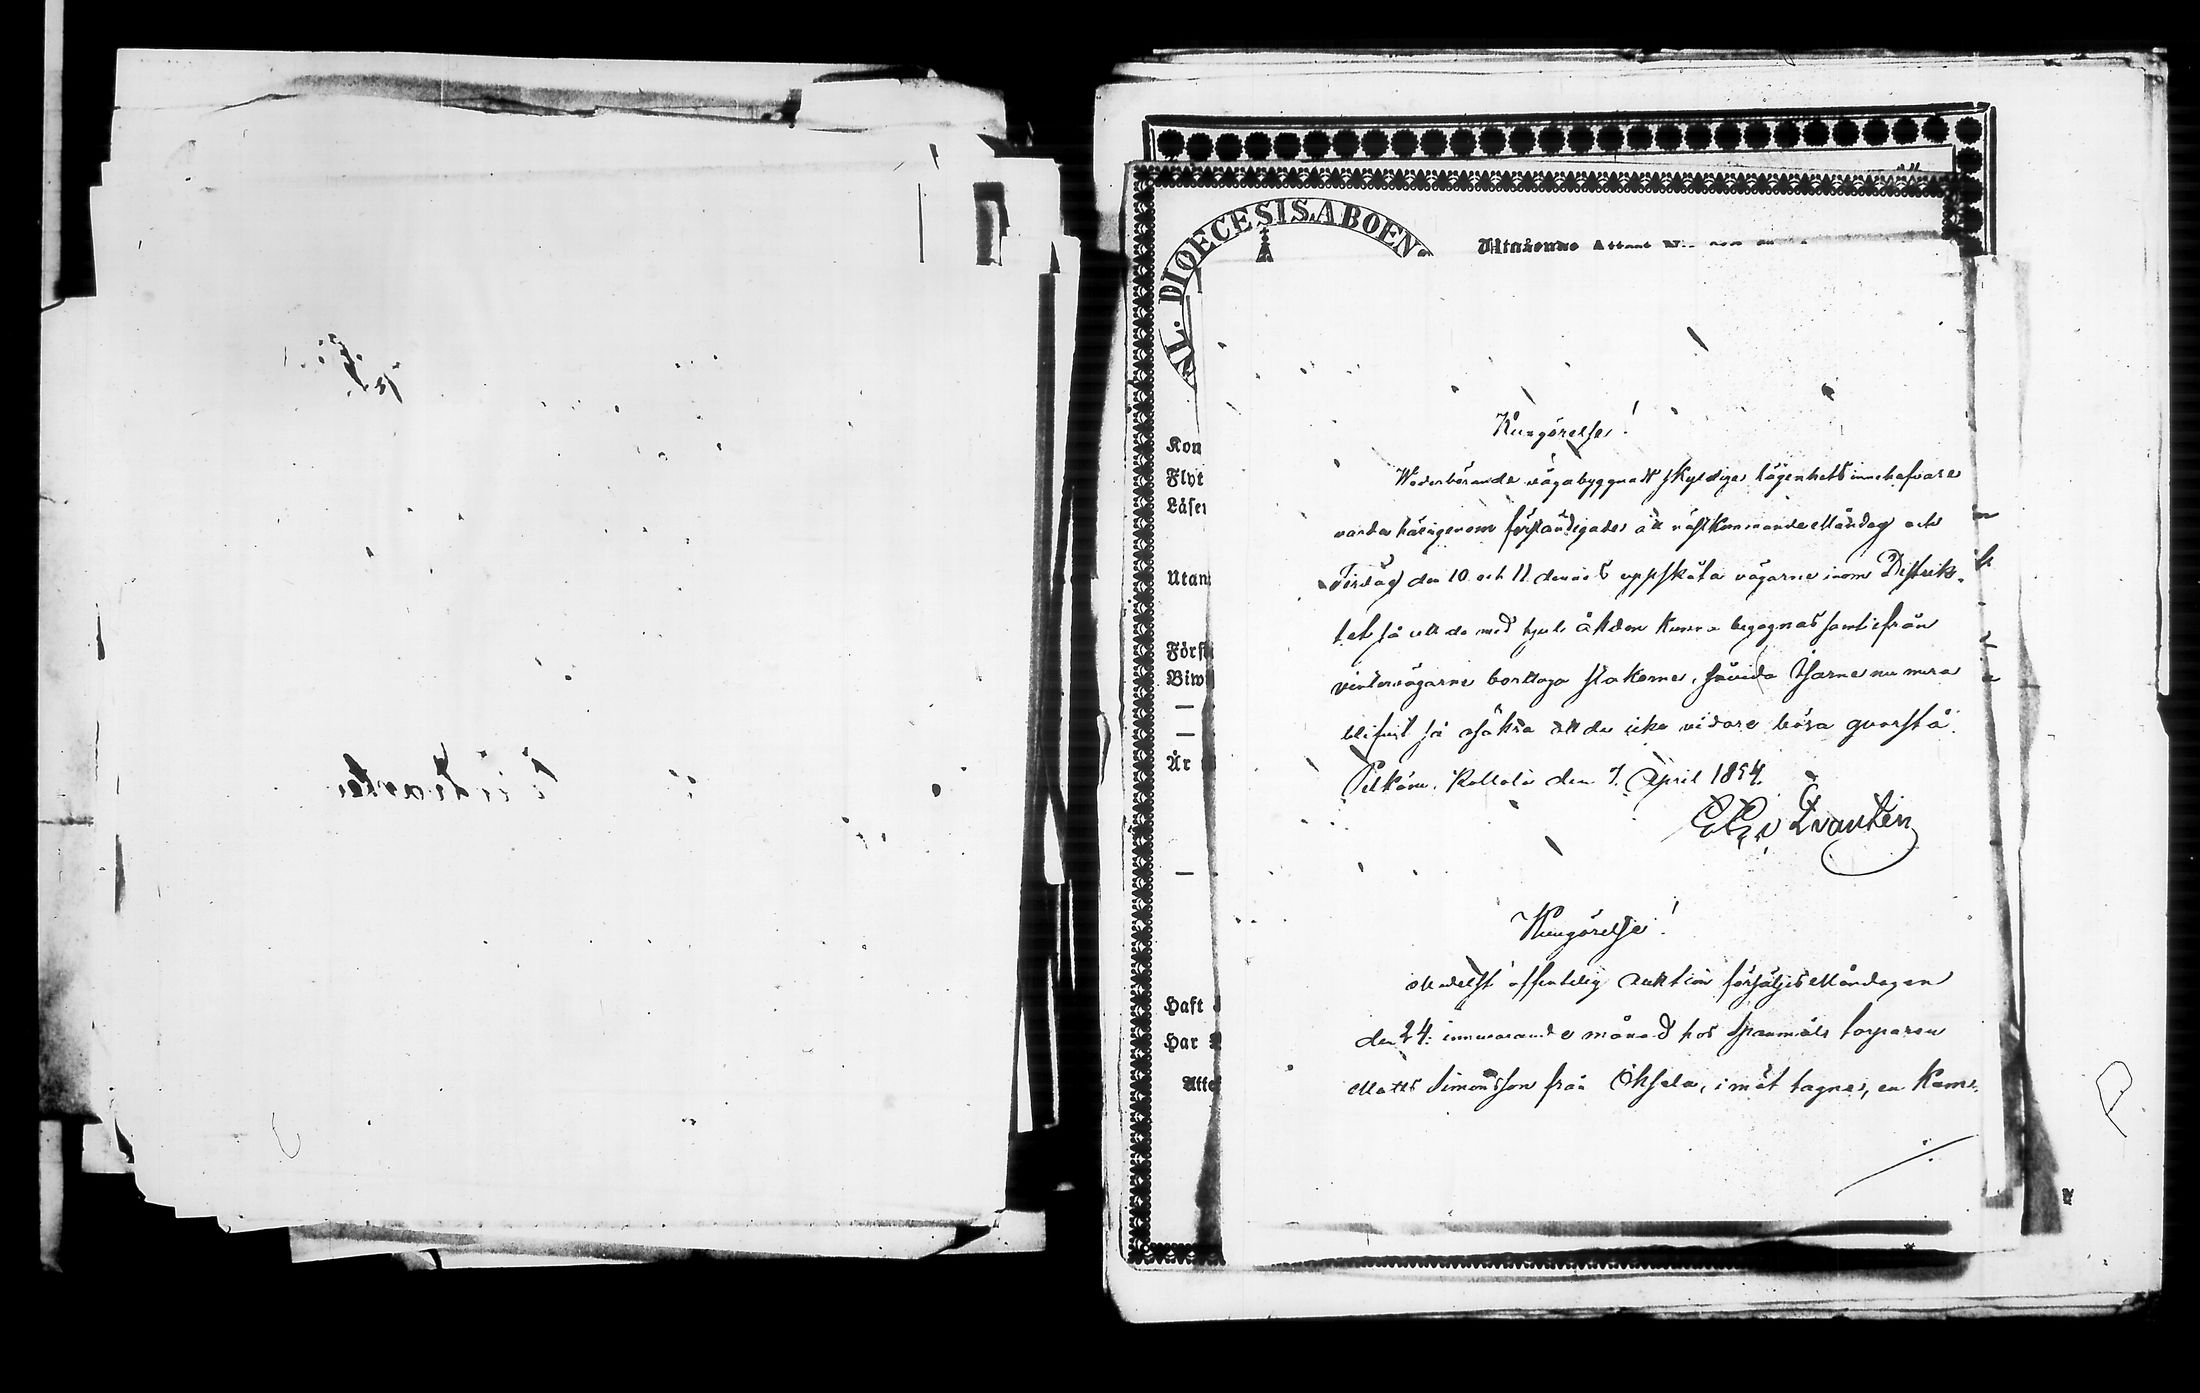 NL. DIOECESIS. ABOEN
Utgående Attest
Kon
Flyt
Läser
Utan
Först
Biw
År
Haft
Har
Atte
Kungörelse!
Wederbörande vägabyggnadtskyldige lägenhetsinnehafvare
varda härigenom förständigade att nästkommande Måndag och
Tisdag den 10 och 11 dennes uppskåta vägarne inom Distrik-
tet så att de med hjul åkdon kunna begagnas samt ifrån
vintervägarne borttaga stakorne, såvida isarne nu mera
blifvit så osäkra att de icke vidare böra qvarstå.
Pelkäne. Kollola den 7. April 1854.
v Qvanten
Kungörelse!
Medelst offentelig auktion försäljes Måndagen
den 24: innevarande månad hos spanmåls torparen
Matts Simonsson från Öksala, i mät tagne, en
./.